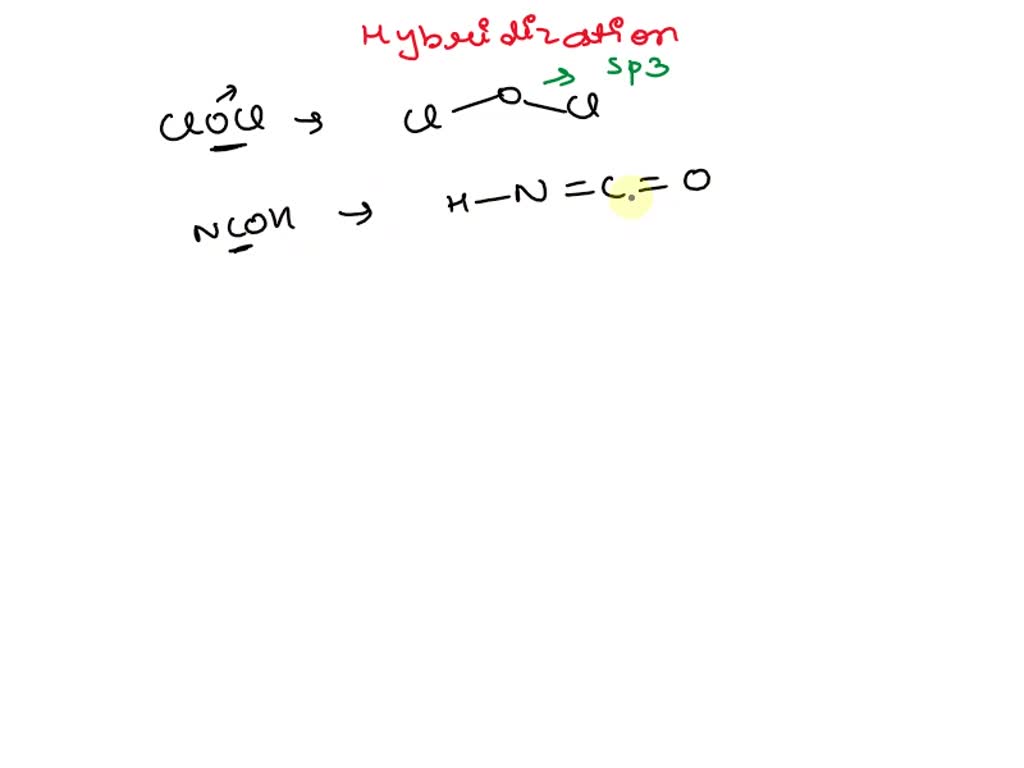 Hybridization
sp3
ClOCl → Cl-O-Cl
NCOH → H-N=C=O